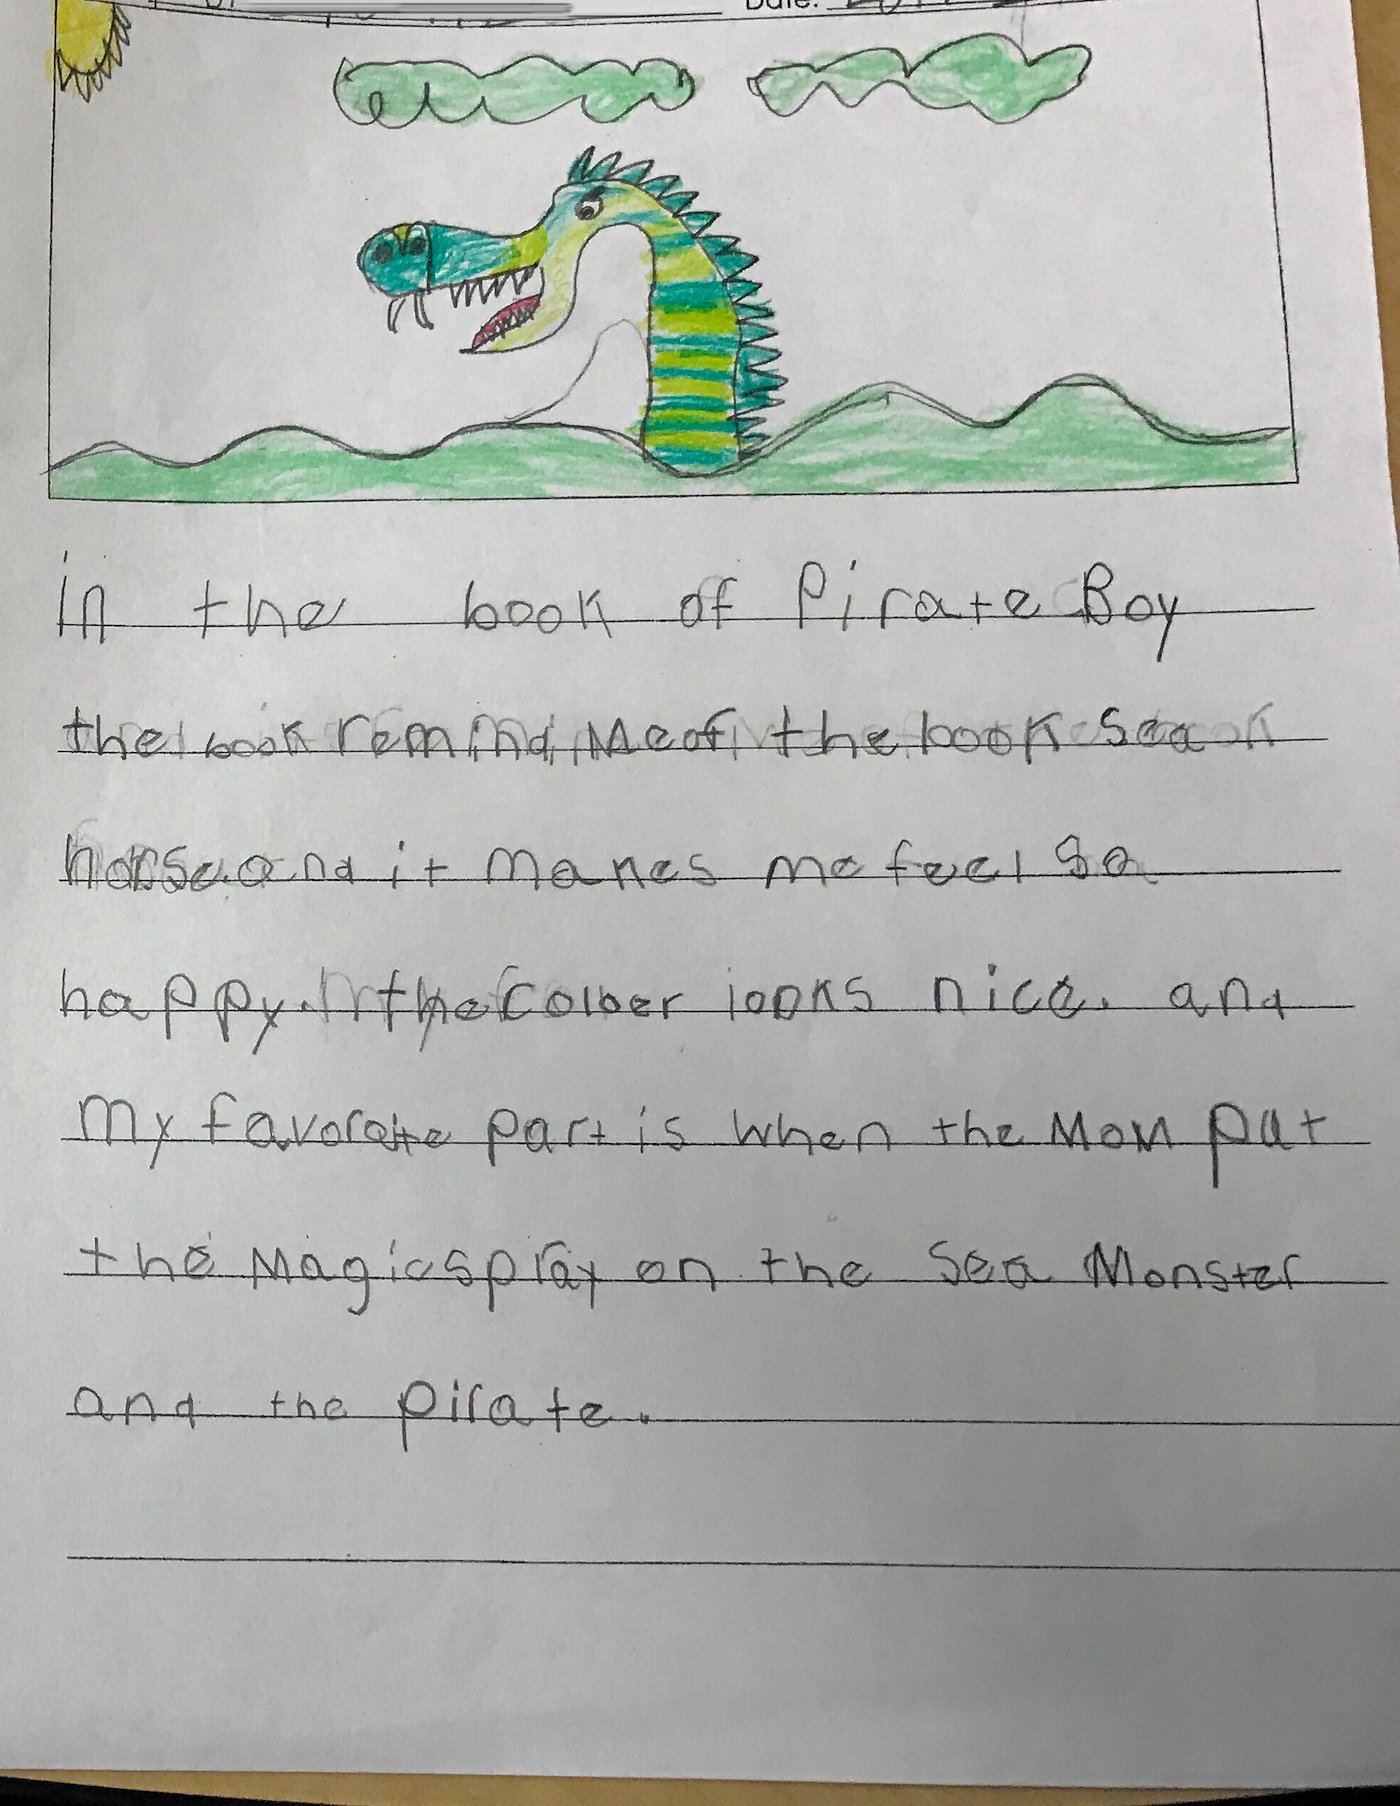 Date:
in the book of Pirate Boy
the book remind Me of the book Sea
horse. and it makes me feel so
happy. the Colber looks nice. and
My favoratte part is when the Mom put
the Magic spray on the Sea Monster
and the pirate.